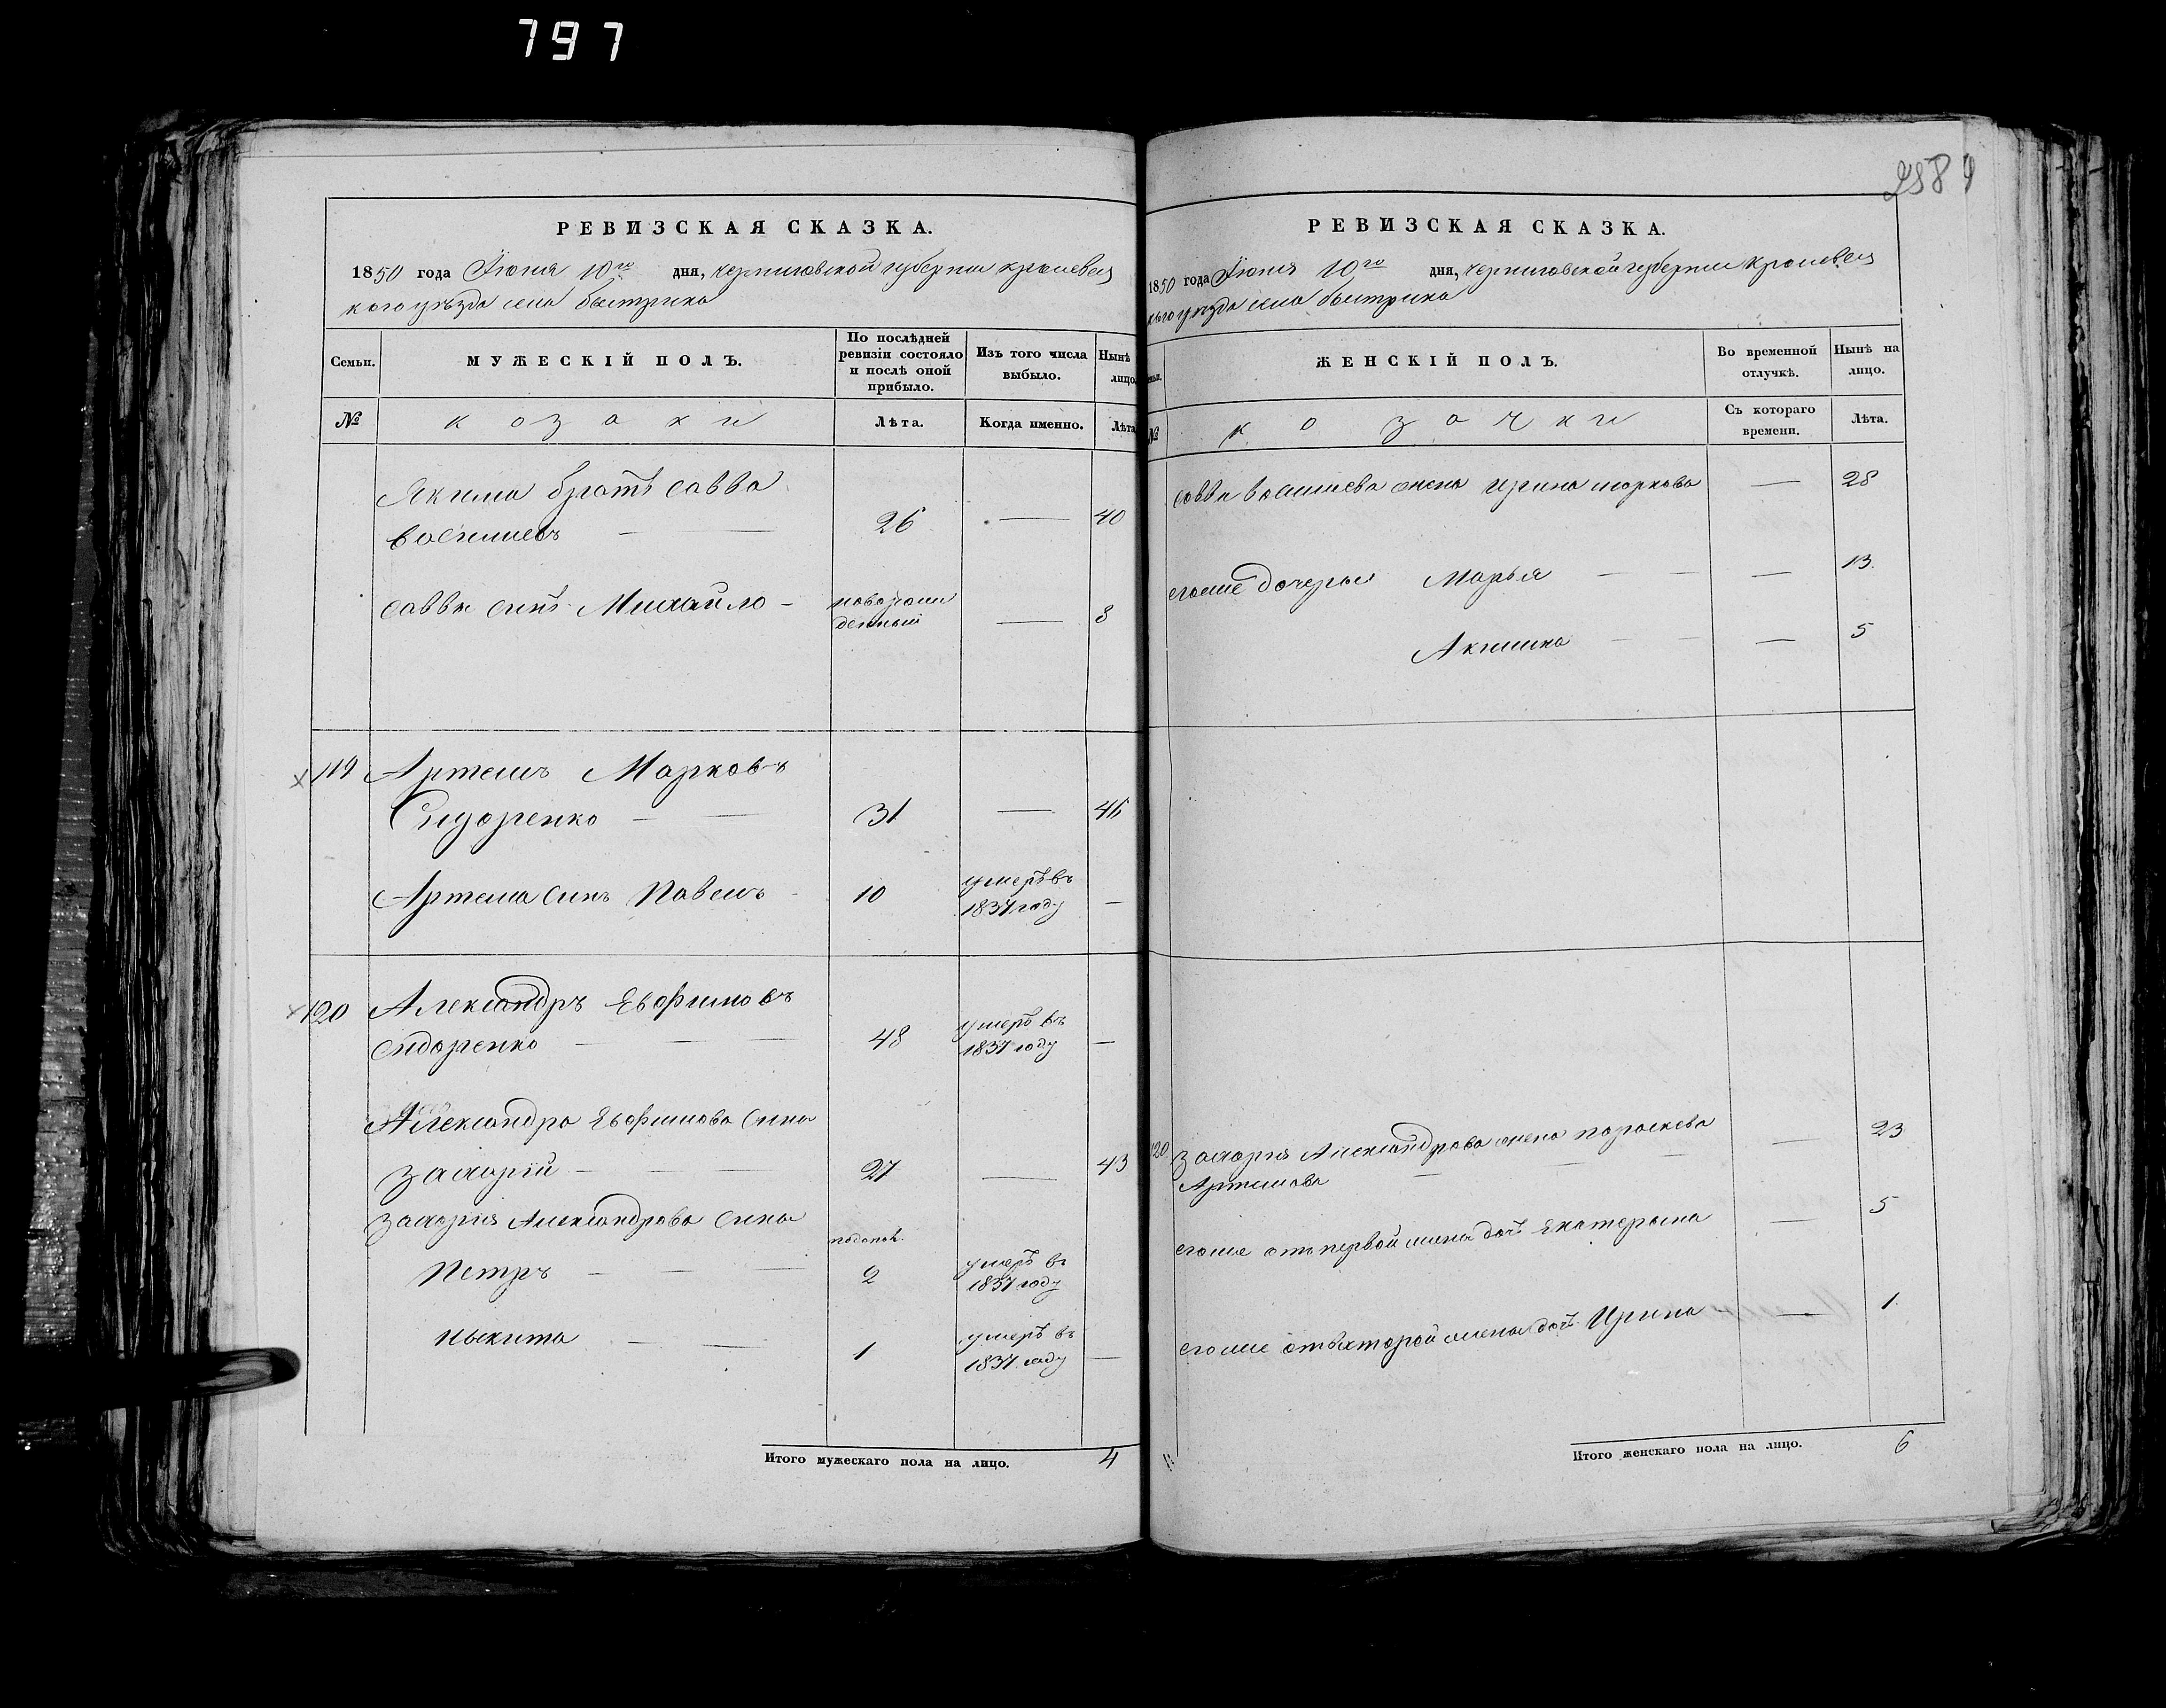 797
2889
РЕВИЗСКАЯ СКАЗКА.
1850 года Іюня 10го дня, Черниговской губерніи кролевец
кого уѣзда села быстрика
Семьи. МУЖЕСКІЙ ПОЛЪ. По послѣдней ревизіи состояло и послѣ оной прибыло. Изъ того числа выбыло. Нынѣ лицо
№ козаки Лѣта. Когда именно. Лѣта
Якима братъ Савва
Васильевъ — — 26 — 40
Саввы сынъ Михайло — новорож
денный — 8
119 Артемъ Марковъ
Сидоренко — — 31 — 46
Артема сынъ Павелъ — 10 умеръ въ
1837 году —
120 Александръ Евфимовъ
Сидоренко — — — 48 умеръ въ
1837 году —
Александра Евфимова сынъ
Захарій — — — 27 — 43
Захарія Александрова сыны
Петръ — — — 2 умеръ въ
1837 году
Ныкита — — 1 умеръ въ
1837 году —
Итого мужескаго пола на лицо. 4
РЕВИЗСКАЯ СКАЗКА.
1850 года Іюня 10го дня, Черниговской губерніи кролевец
кого уѣзда села быстрика
ЖЕНСКІЙ ПОЛЪ. Во временной отлучкѣ. Нынѣ на лицо.
№ козачки Съ котораго времени. Лѣта.
Саввы Васильева жена Ирина Маркова — 28
его же дочеры Марья — — — 13
Акилина — — — 5
120 Захарія Александрова жена Параскева — 23
Артемова — — —
его же отъ первой жены дочь Екатерына — 5
его же отъ второй жены дочь Ирина — — 1
Итого женскаго пола на лицо. 6